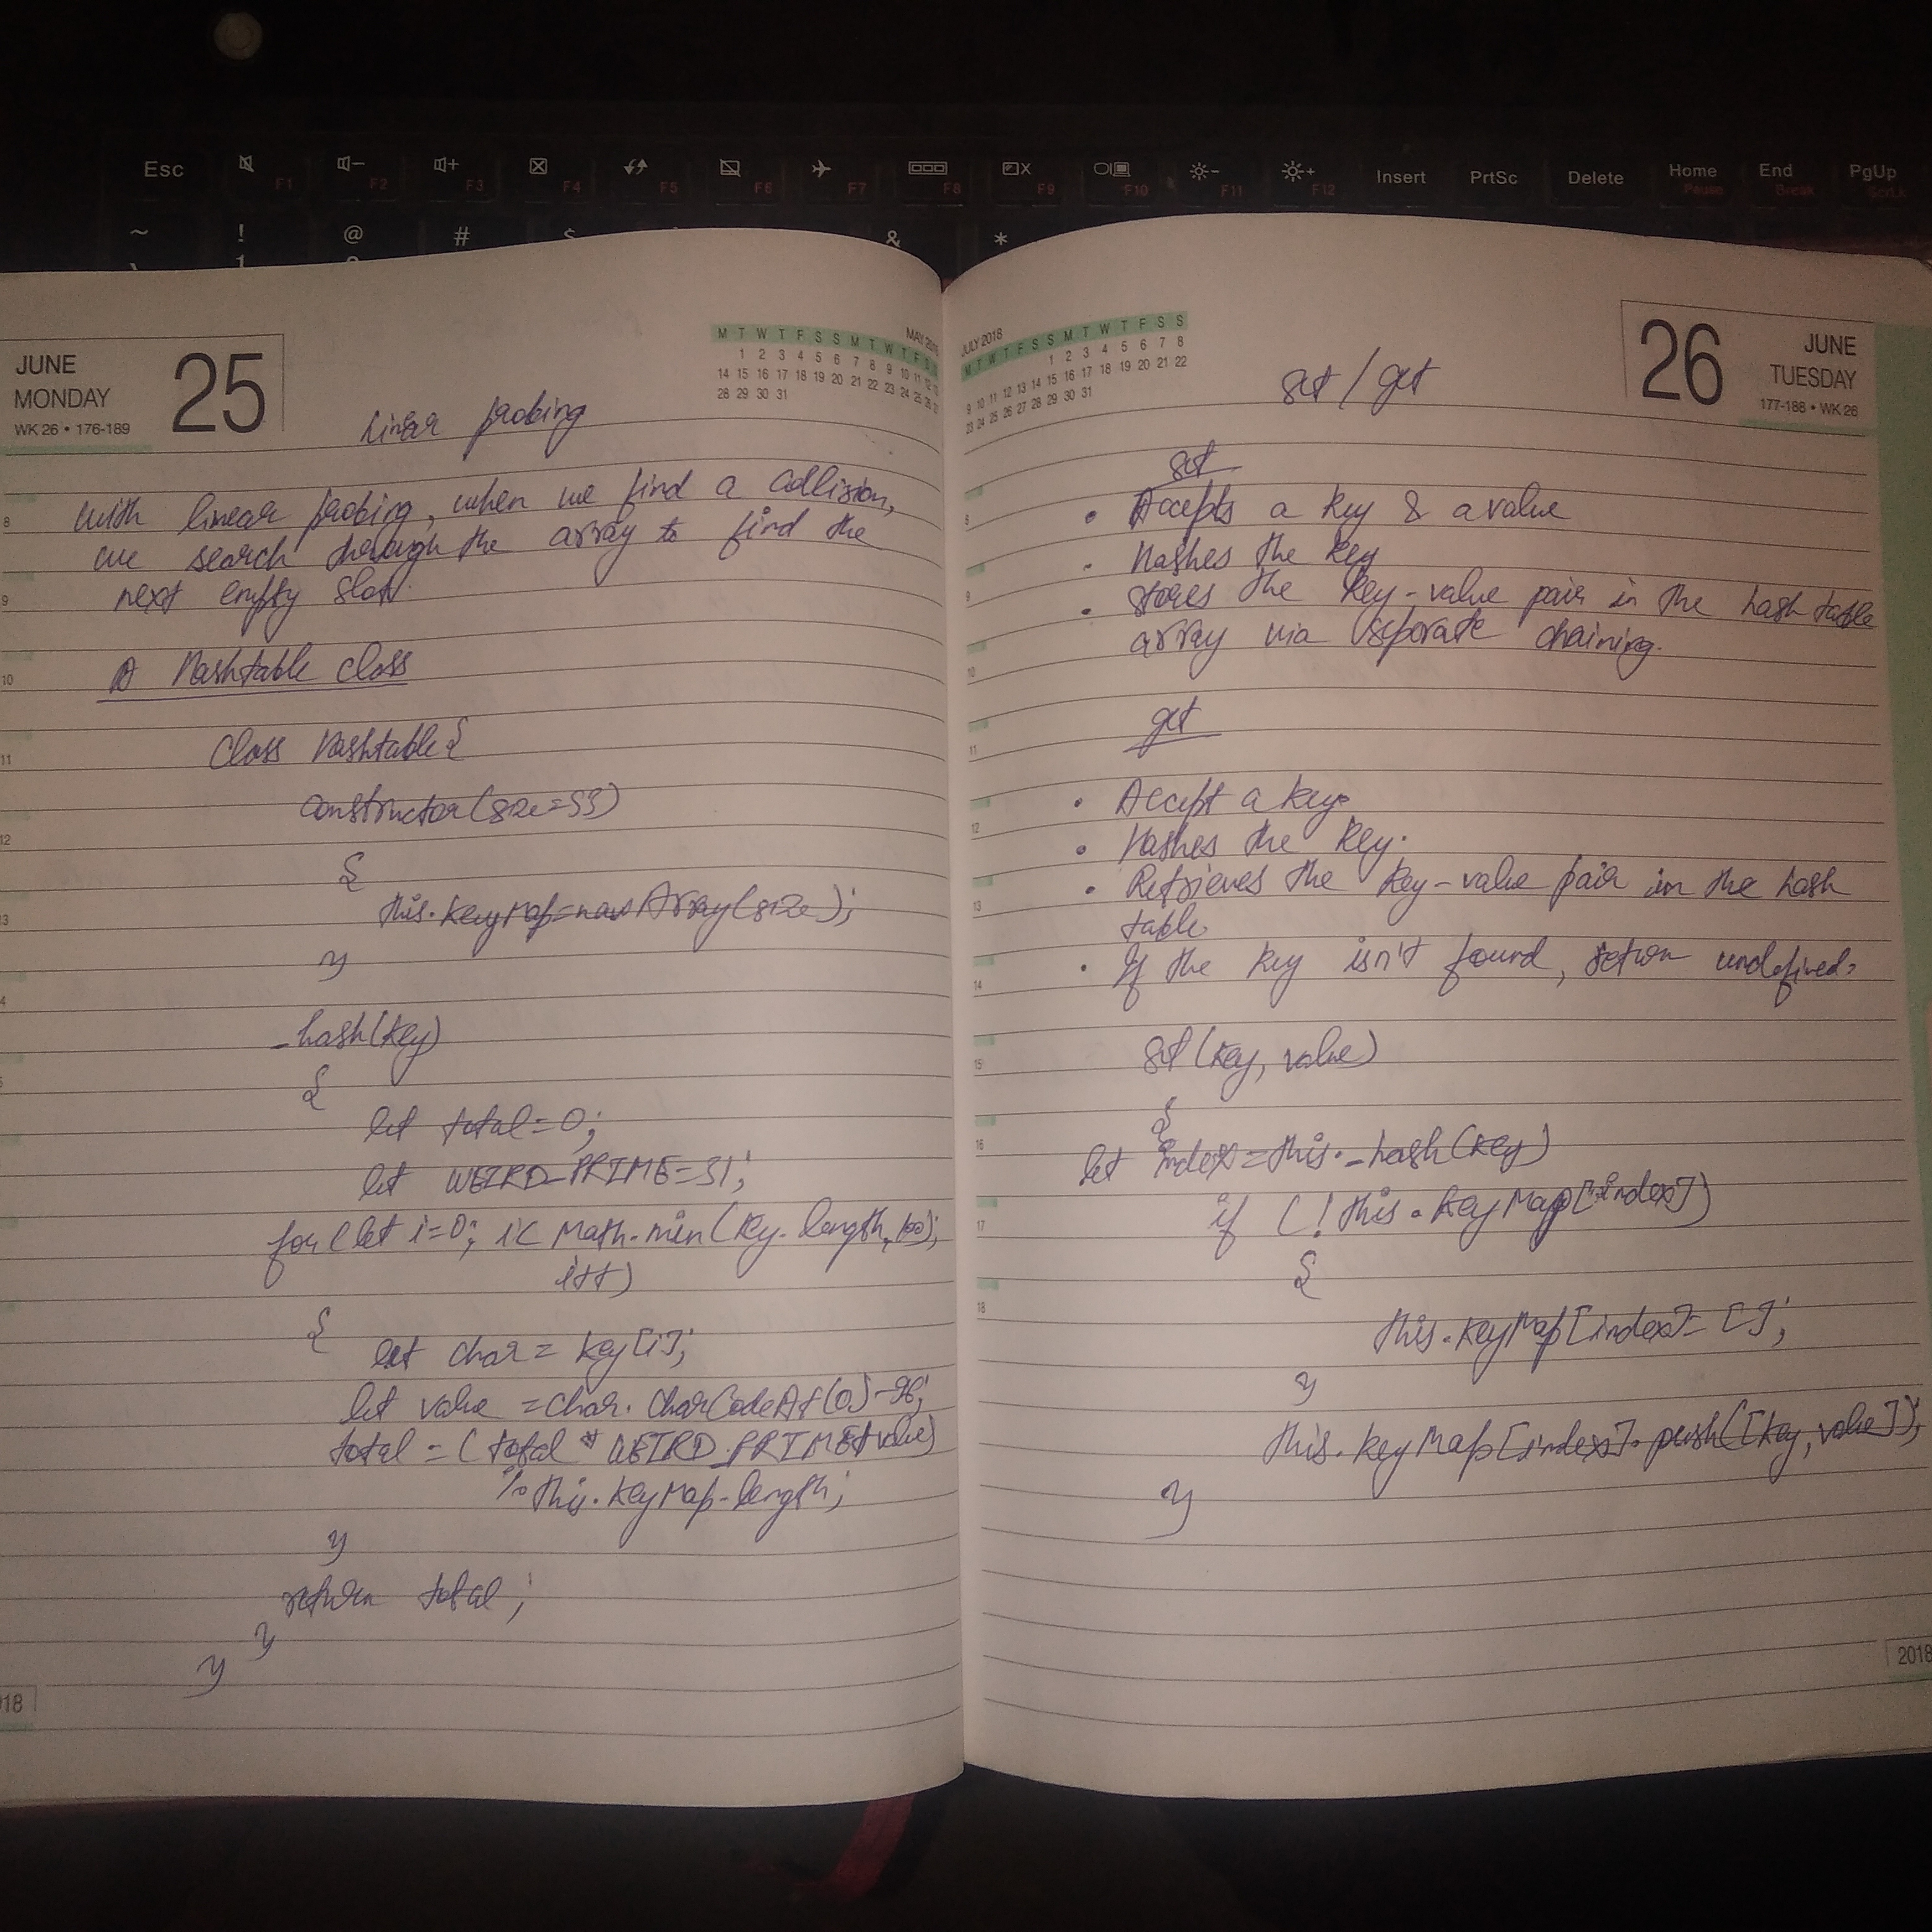 Esc F1 F2 F3 F4 F5 F6 F7 F8 F9 F10 F11 F12 Insert PrtSc Delete Home Pause End Break PgUp ScrLk
~ ! @ # $ & *
1
JUNE
MONDAY
WK 26 • 176-189
25
MAY 2018
M T W T F S S M T W T F S S
1 2 3 4 5 6 7 8 9 10 11 12 13
14 15 16 17 18 19 20 21 22 23 24 25 26 27
28 29 30 31
linear probing
With linear probing, when we find a collision,
we search through the array to find the
next empty slot.
A Hashtable class
Class Hashtable {
constructor(size=53)
{
this.keyMap=new Array(size);
}
_hash(key)
{
let total=0;
let WEIRD_PRIME=31;
for(let i=0; i< Math.min(key.length,100);
i++)
{
let char = key[i];
let value =char.charCodeAt(0)-96;
total = (total * WEIRD_PRIME+value)
% this.keyMap.length;
}
return total;
}
}
JULY 2018
M T W T F S S M T W T F S S
1 2 3 4 5 6 7 8
9 10 11 12 13 14 15 16 17 18 19 20 21 22
23 24 25 26 27 28 29 30 31
26
JUNE
TUESDAY
177-188 • WK 26
set / get
set
• Accepts a key & a value
• Hashes the key
• Stores the key-value pair in the hash table
array via separate chaining.
get
• Accept a key.
• Hashes the key.
• Retrieves the key-value pair in the hash
table.
• If the key isn't found, return undefined.
set(key, value)
{
let index=this._hash(key)
if (!this.keyMap[index])
{
this.keyMap[index]= [];
}
this.keyMap[index].push([key,value]);
}
2018